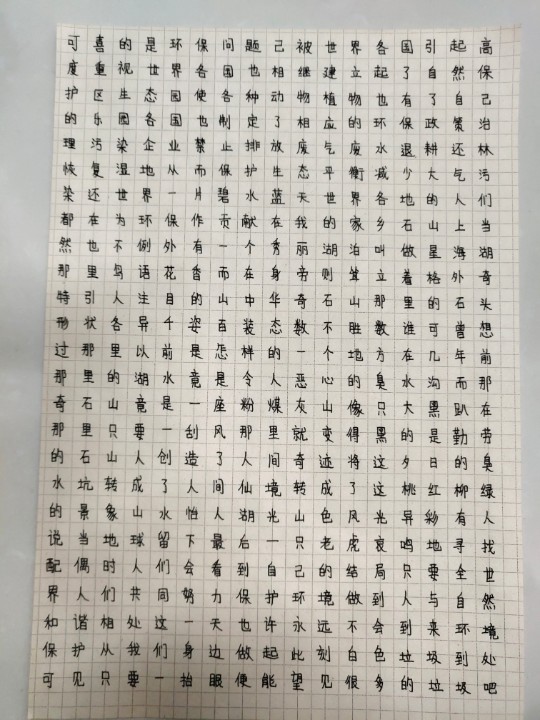 可喜的是环保问题己被世界各国引起高
度重视世界各国也相继建立起了自然保
护区生态园使各种动物植物也有了自己
的乐园各国也制定了相应的环保政策治
理污染企业禁止排放废气废水退耕还林
恢复湿地从而保护生态平衡减少大气污
染还世界一片碧水蓝天世界各地的人们
都在为环保作贡献在我的家乡石山上当
然也不例外有一个秀丽湖泊叫做星海湖
那里鸟语花香而在身旁则耸立着格外奇
特引人注目的山中华奇石山那里的石头
形状各异千姿百装态数不胜数谁可曾想
过那里以前是怎样的一个地方在几年前
那里的湖水竟是令人恶心的臭水沟而那
奇石山竟是一座粉煤灰山像只大黑趴在
那里只要一刮风那里就变得黑的是勤劳
的石山人创造了人间奇迹将这夕日的臭
水坑转成了人间仙境转成了这桃红柳绿
的景象山水怡人湖光山色风光异彩有人
说当地球留下最后一只老虎哀鸣地寻找
配偶时人们会看到自己的结局只要全世
界人们共同努力保护环境做到人与自然
和谐相处这一天也许永远不会到来环境
保护从我们身边做起此刻白色垃圾到处
可见只要一抬眼便能望见很多的垃圾吧